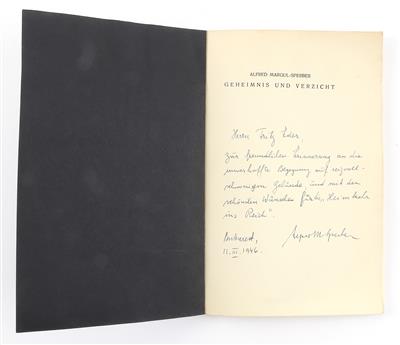 ALFRED MARGUL-SPERBER
GEHEIMNIS UND VERZICHT
Herrn Fritz Eder
zur freundlichen Erinnerung an die
unverhoffte Begegnung auf
Gelände, und mit den
schönsten Wünschen für die „Heimkehr
ins Reich".
Bukarest,
11. III. 1946.
Alfred M. Sperber